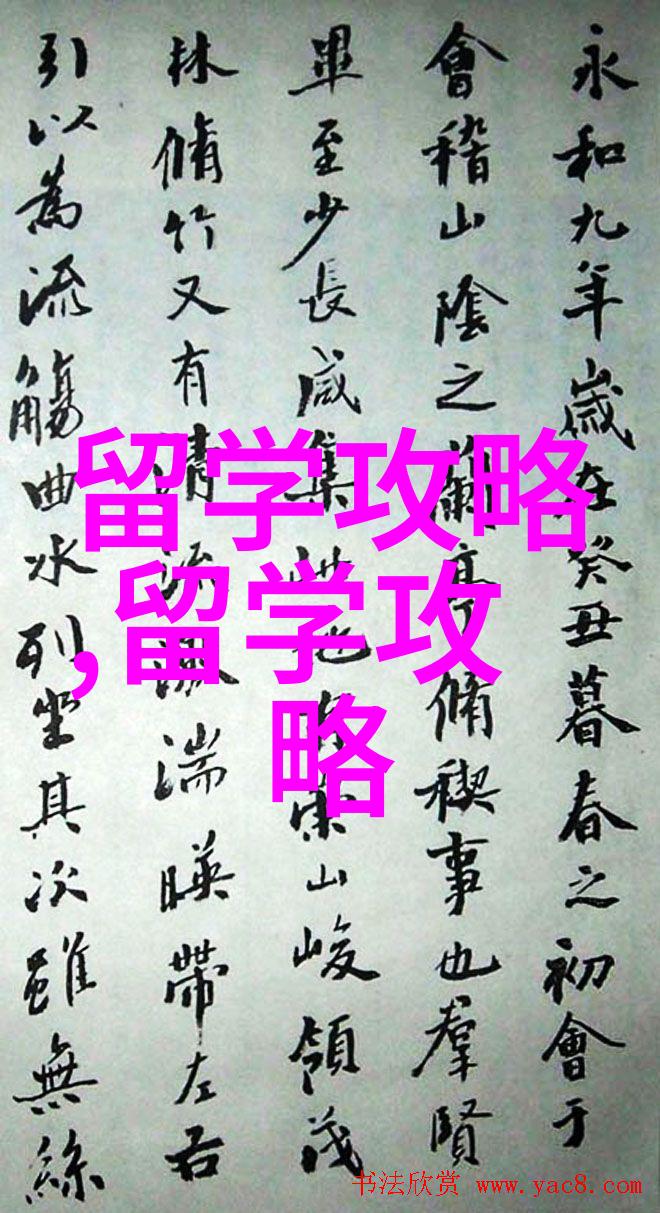 永和九年歲在癸丑暮春之初會于
會稽山陰之蘭亭脩稧事也羣賢
畢至少長咸集此地有崇山峻領茂
林脩竹又有清流激湍暎帶左右
引以為流觴曲水列坐其次雖無絲
留学攻略
,留学攻
略
书法欣赏 www.yac8.com